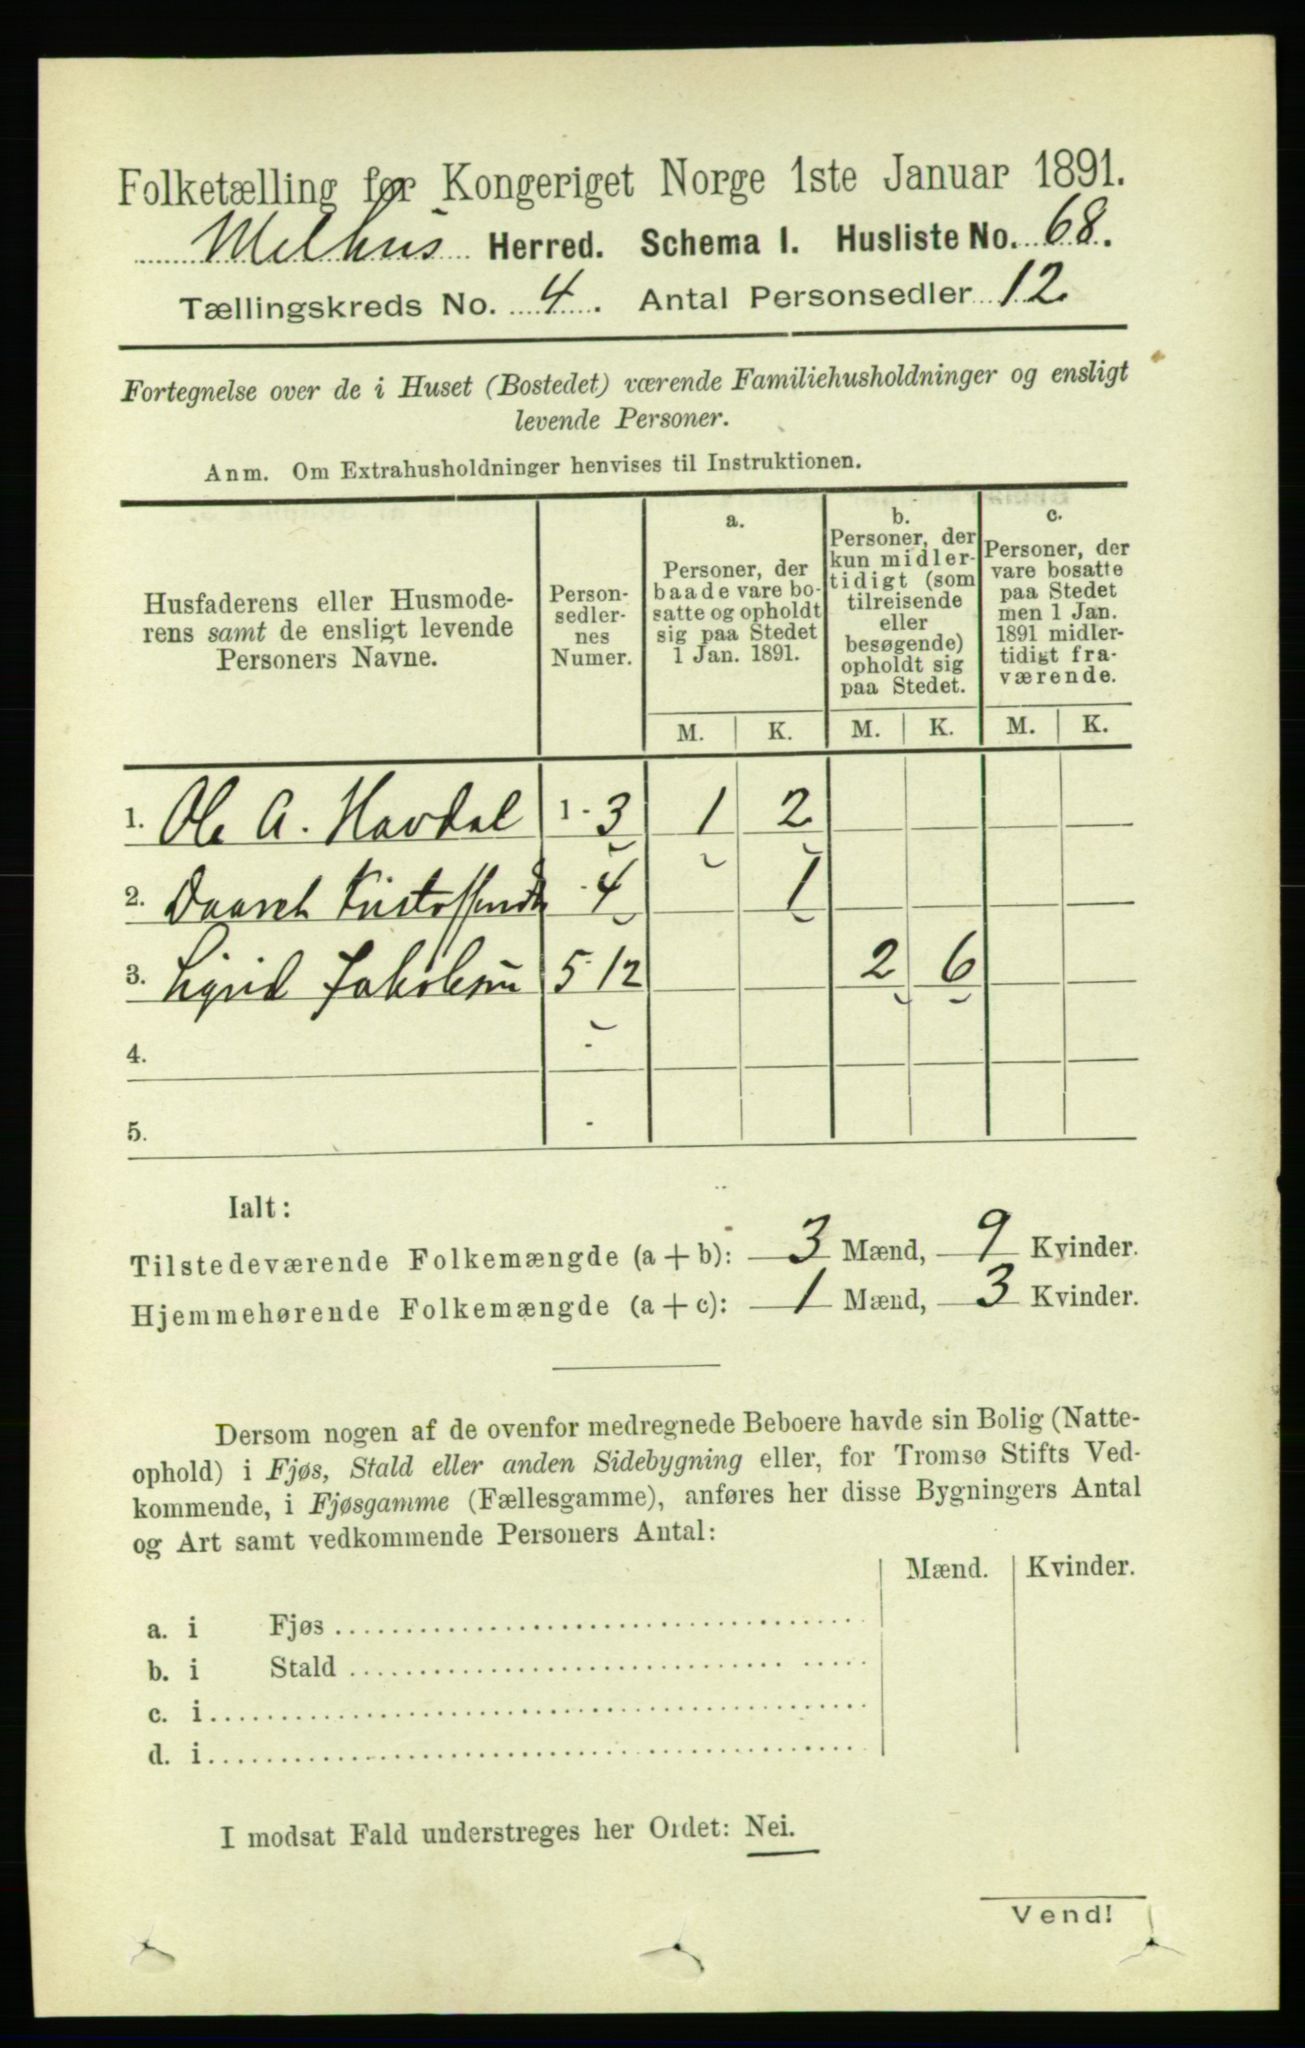 Folketælling for Kongeriget Norge 1ste Januar 1891.
Melhus Herred. Schema I. Husliste No. 68.
Tællingskreds No. 4. Antal Personsedler 12.
Fortegnelse over de i Huset (Bostedet) værende Familiehusholdninger og ensligt
levende Personer.
Anm. Om Extrahusholdninger henvises til Instruktionen.
Husfaderens eller Husmode-
rens samt de ensligt levende
Personers Navne.
Person-
sedler-
nes
Numer.
a.
Personer, der
baade vare bo-
satte og opholdt
sig paa Stedet
1 Jan. 1891.
b.
Personer, der
kun midler-
tidigt (som
tilreisende
eller
besøgende)
opholdt sig
paa Stedet.
c.
Personer, der
vare bosatte
paa Stedet
men 1 Jan.
1891 midler-
tidigt fra-
værende.
M. K. M. K. M. K.
1. Ole A. Havdal 1-3 1 2
2. 4 1
3. Sigrid Jakobsen 5-12 2 6
4. -
5. -
Ialt:
Tilstedeværende Folkemængde (a + b): 3 Mænd, 9 Kvinder.
Hjemmehørende Folkemængde (a + c): 1 Mænd, 3 Kvinder.
Dersom nogen af de ovenfor medregnede Beboere havde sin Bolig (Natte-
ophold) i Fjøs, Stald eller anden Sidebygning eller, for Tromsø Stifts Ved-
kommende, i Fjøsgamme (Fællesgamme), anføres her disse Bygningers Antal
og Art samt vedkommende Personers Antal:
Mænd. Kvinder.
a. i Fjøs
b. i Stald
c. i
d. i
I modsat Fald understreges her Ordet: Nei.
Vend!